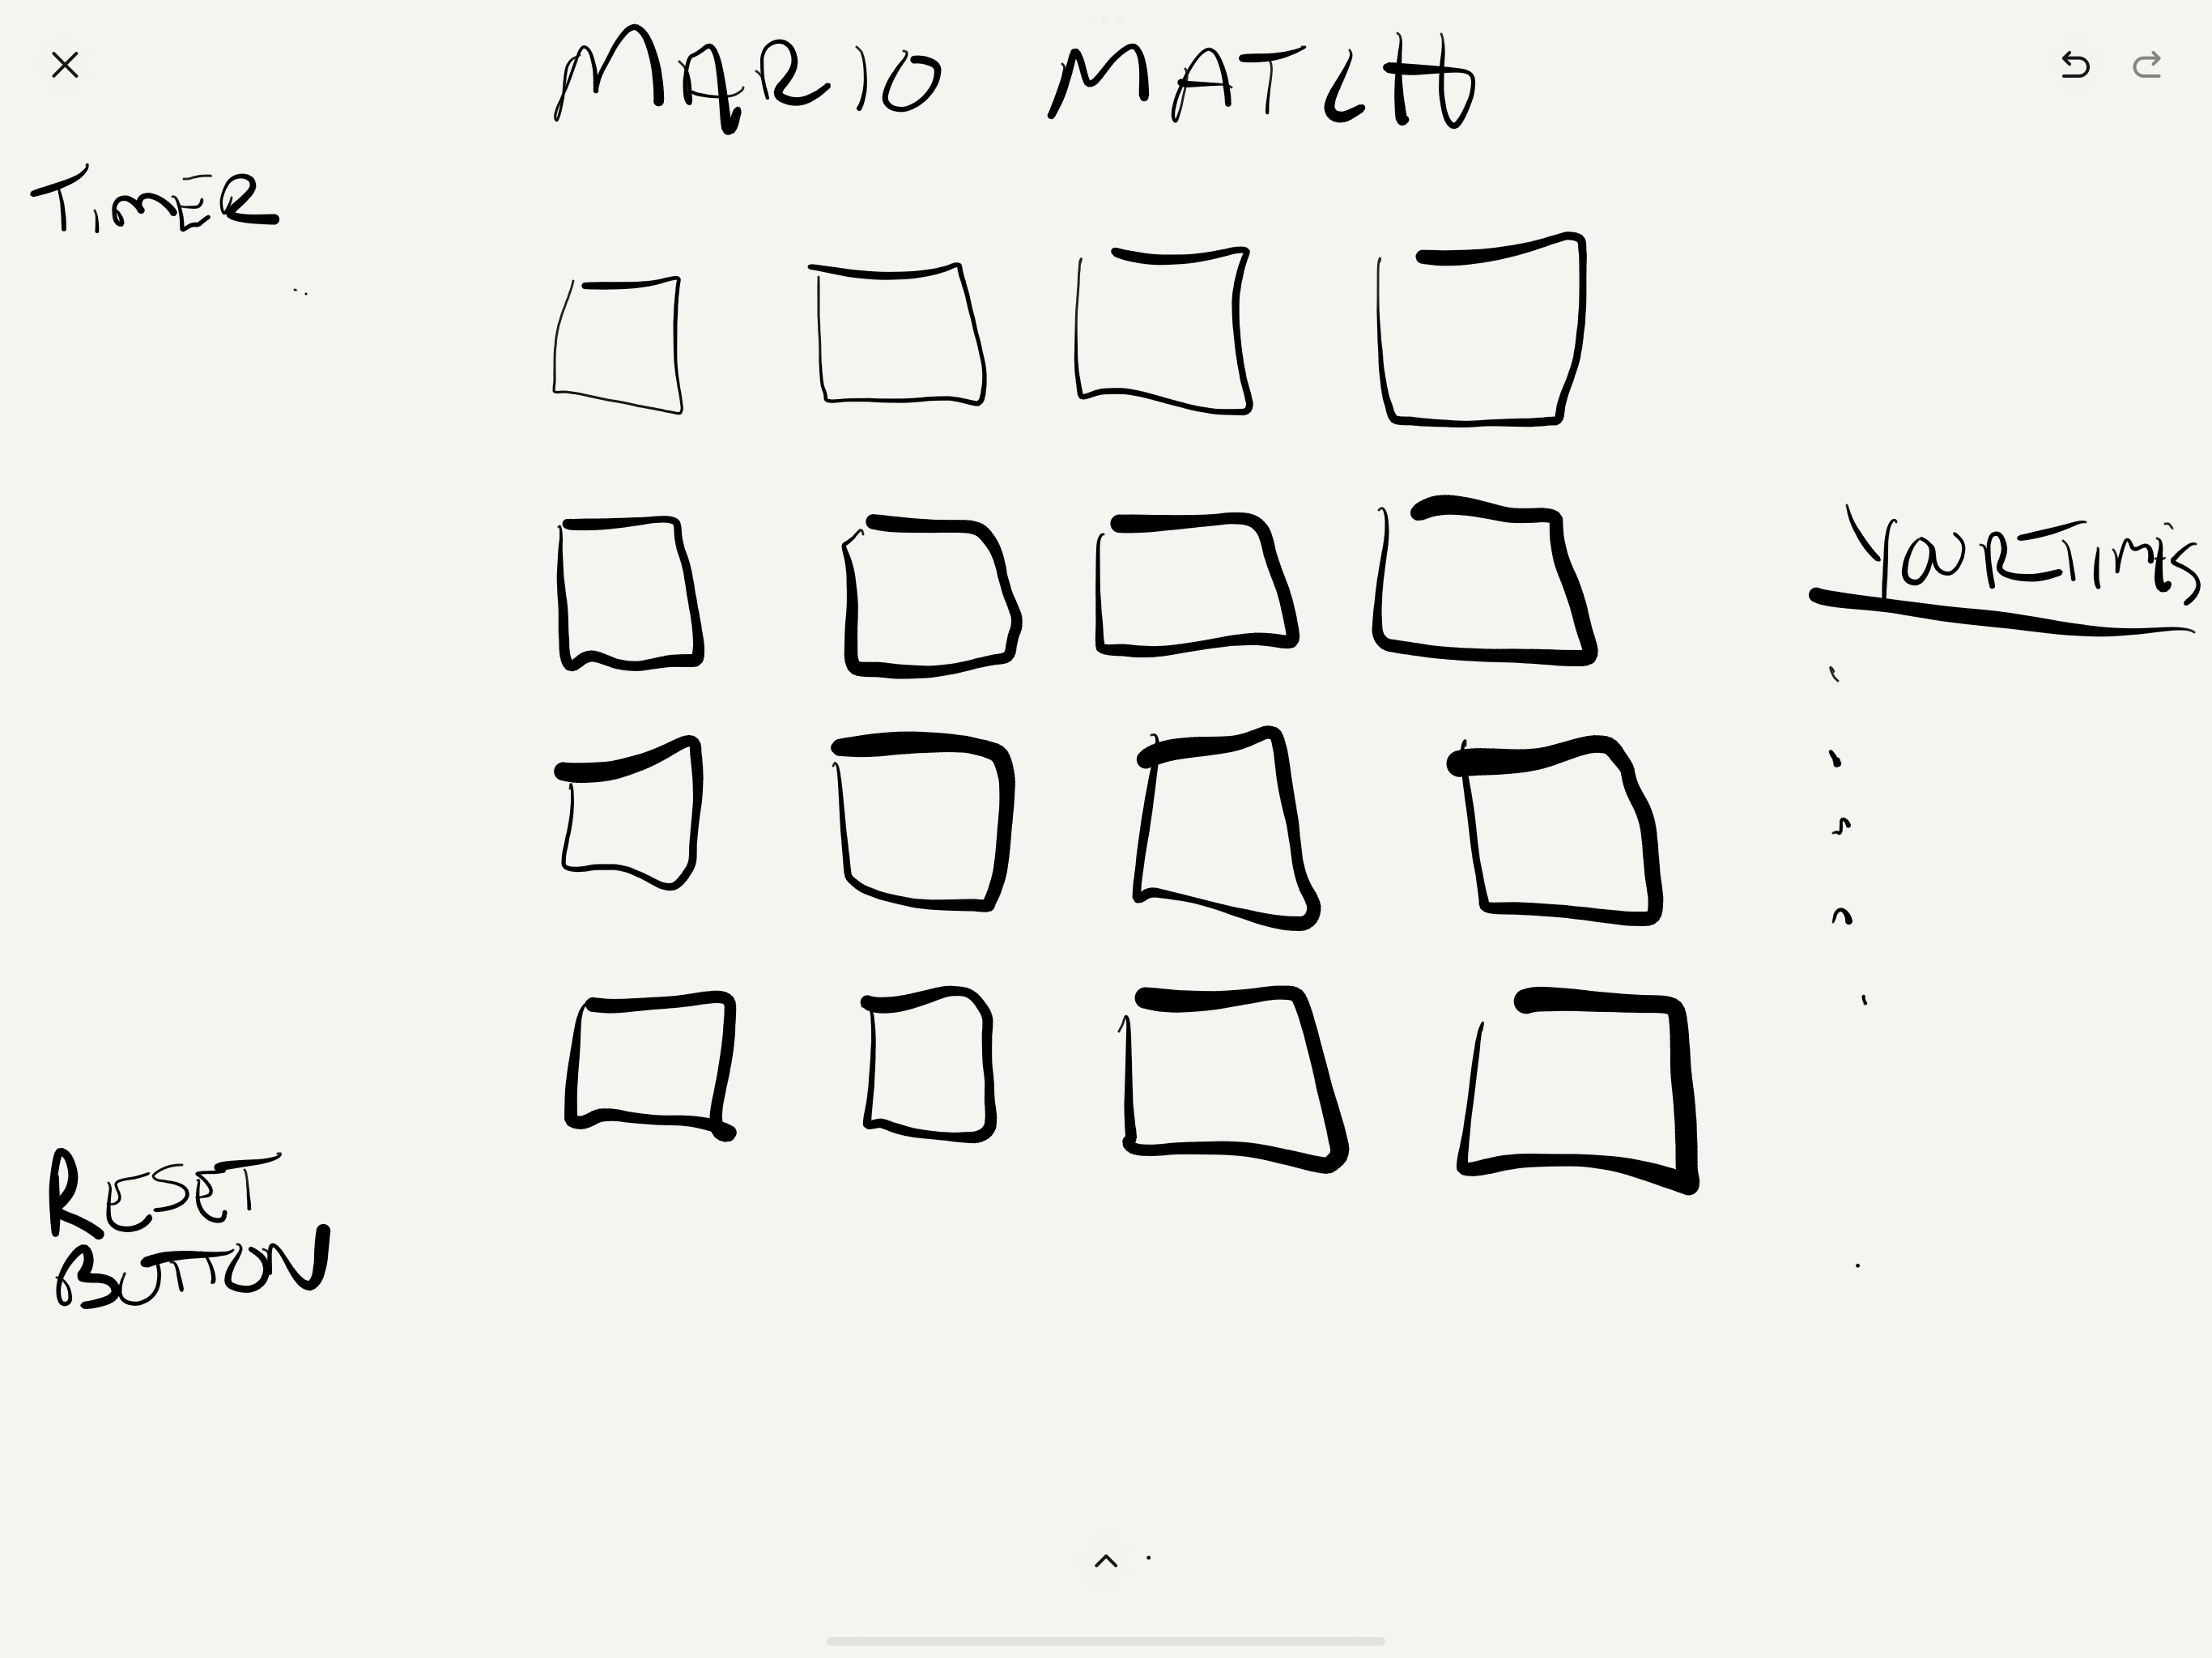 MARIO MATCH
TIMER
YOUR TIMES
RESET
BUTTON